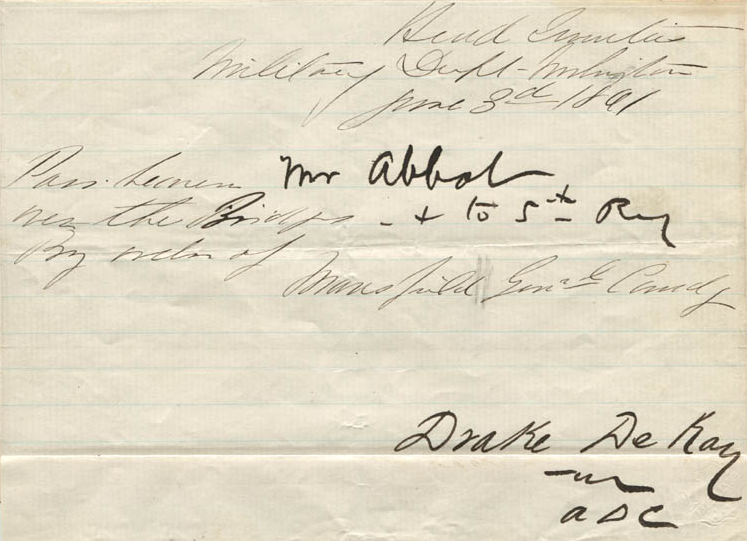 Head Quarters
Military Dept- Washington
June 3d 1861
Pass bearer Mr Abbot
over the Bridges - + to 5th Reg
By order of
Mansfield Gen'l Comdg
Drake De Kay
ADC